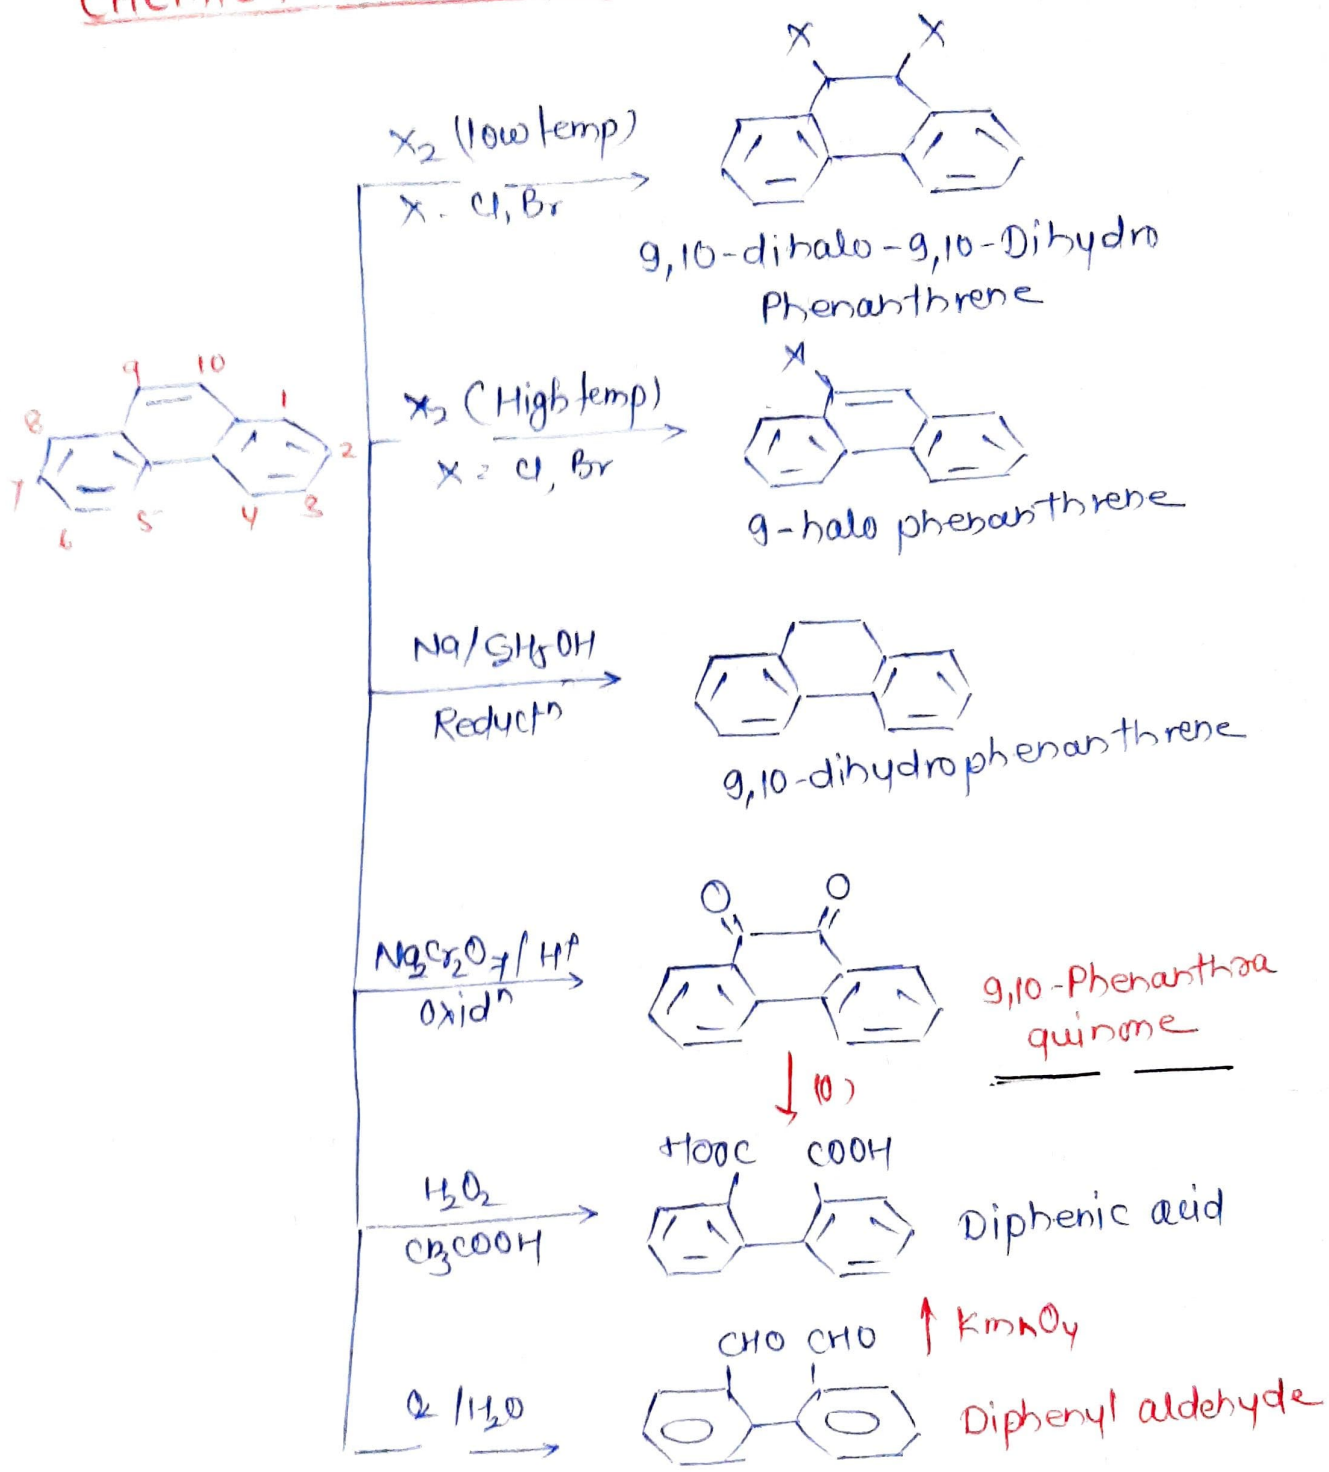 X X
X₂ (low temp)
X - Cl, Br
9,10-dihalo-9,10-Dihydro
Phenanthrene
9 10
8 1
2
7 3
6 5 4
X
X₂ (High temp)
X = Cl, Br
9-halo phenanthrene
Na/C₂H₅OH
Reductⁿ
9,10-dihydrophenanthrene
O O
Na₂Cr₂O₇/H⁺
Oxidⁿ
9,10-Phenanthra
quinone
(O)
HOOC COOH
H₂O₂
CH₃COOH
Diphenic acid
KMnO₄
CHO CHO
/H₂O
Diphenyl aldehyde